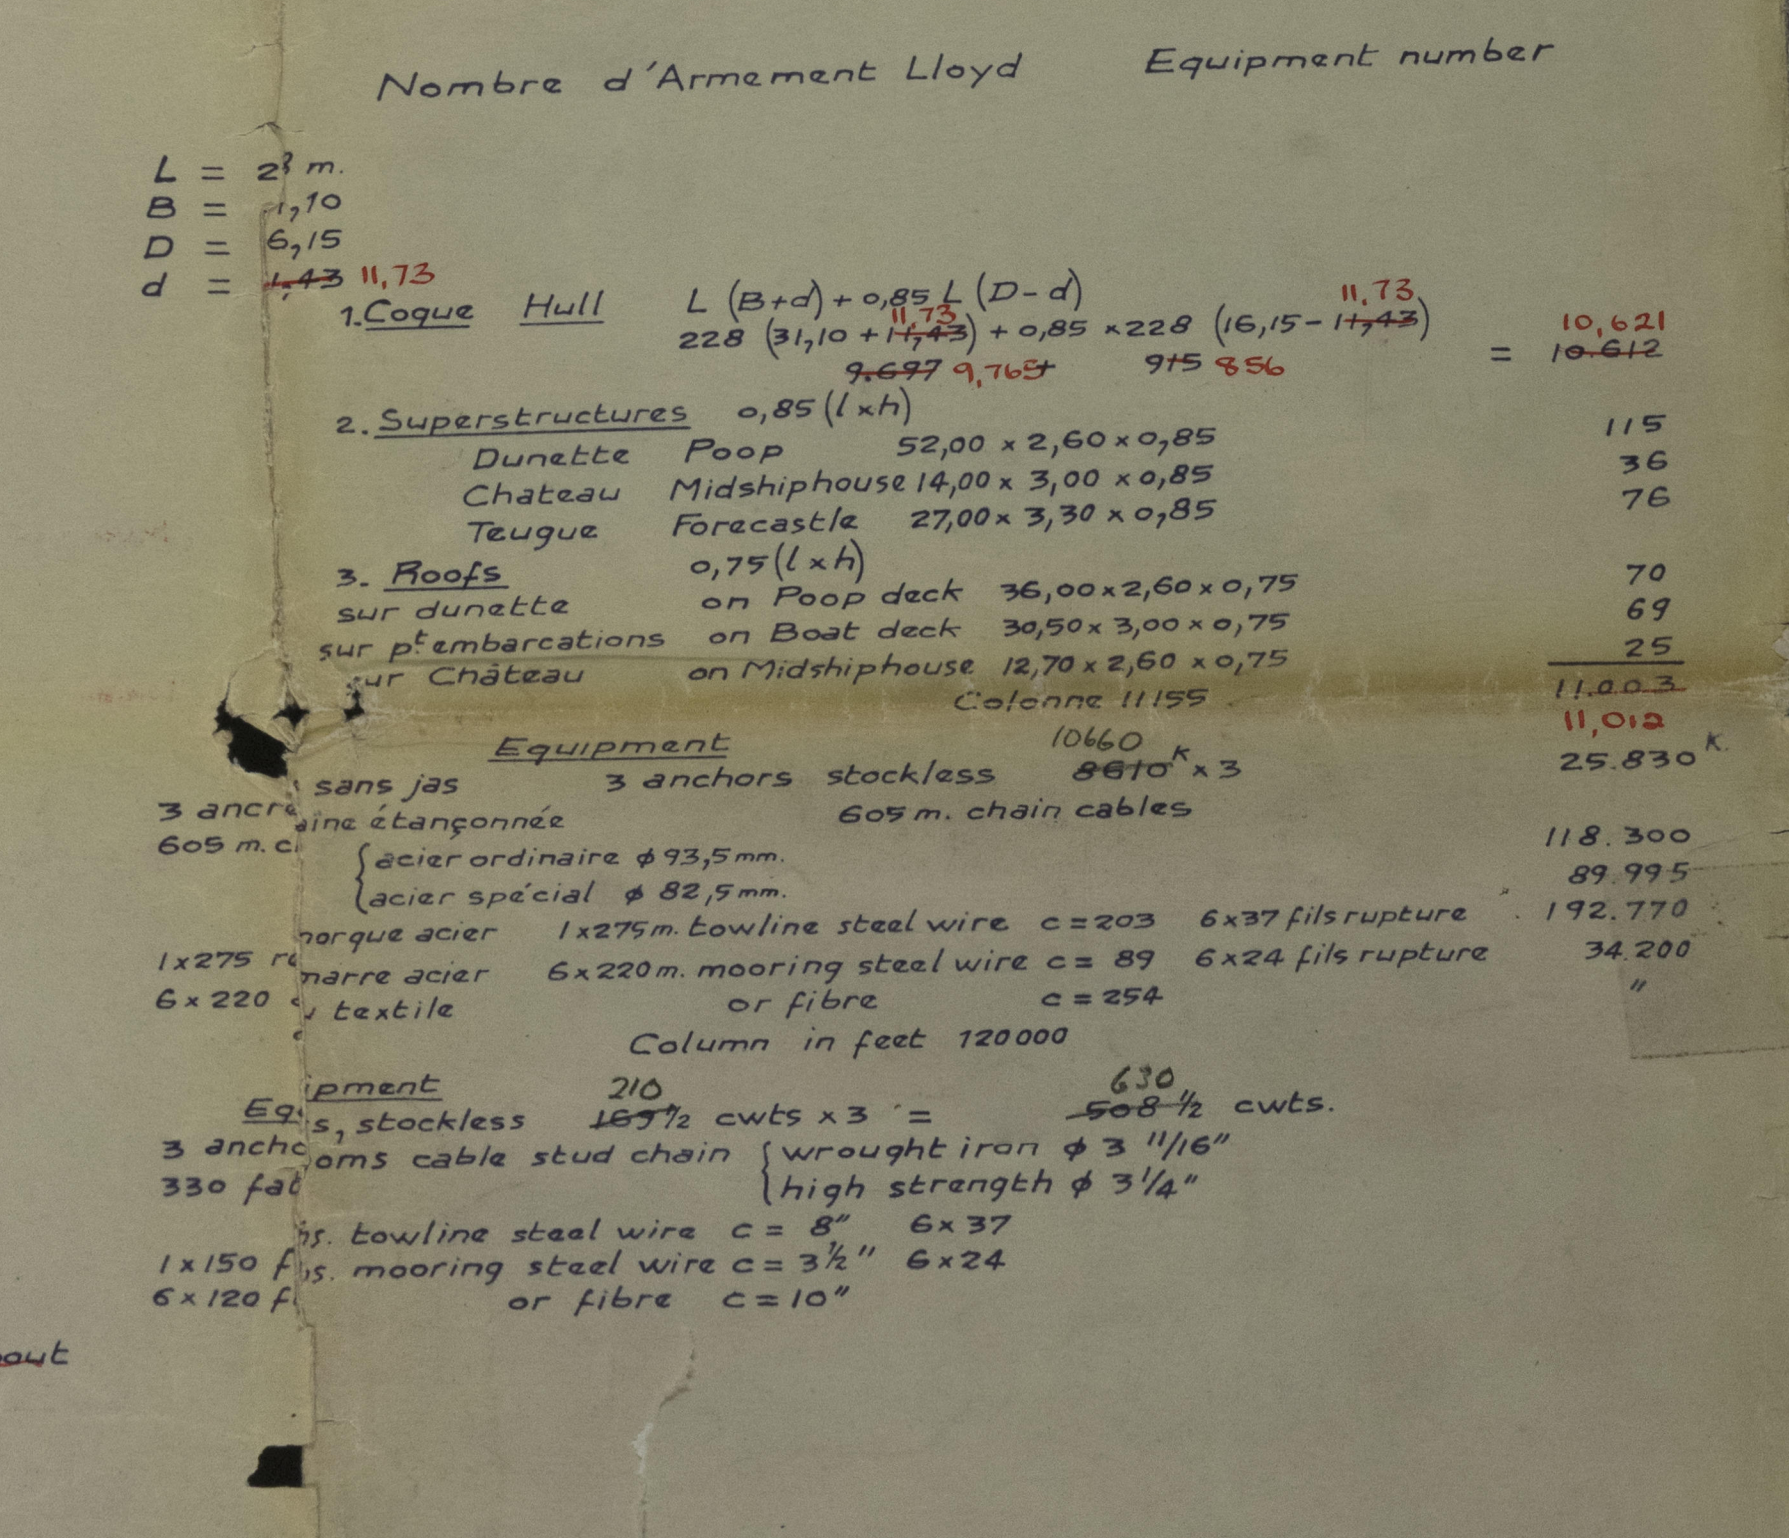 Nombre d'Armement Lloyd Equipment number
L = 2 m.
B = 1,10
D = 6,15
d = 1,43 11,73
1. Coque Hull L (B+d) + 0,85 L (D-d)
11,73 11,73
228 (31,10 + 11,43) + 0,85 × 228 (16,15 - 11,43) 10,621
9.697 9,765+ 915 856 = 10.612
2. Superstructures 0,85 (l × h)
Dunette Poop 52,00 × 2,60 × 0,85 115
Chateau Midshiphouse 14,00 × 3,00 × 0,85 36
Teugue Forecastle 27,00 × 3,30 × 0,85 76
3. Roofs 0,75 (l × h)
sur dunette on Poop deck 36,00 × 2,60 × 0,75 70
sur pt embarcations on Boat deck 30,50 × 3,00 × 0,75 69
sur Château on Midshiphouse 12,70 × 2,60 × 0,75 25
Colonne 11155 11.003
11,012
Equipment 10660
3 ancre sans jas 3 anchors stockless 8610 K × 3 25.830 K.
605 m. c aine étançonnée 605 m. chain cables
{acier ordinaire φ 93,5 mm. 118.300
{acier spécial φ 82,5 mm. 89.995
1 × 275 re morque acier 1 × 275 m. towline steel wire c = 203 6 × 37 fils rupture 192.770
6 × 220 marre acier 6 × 220 m. mooring steel wire c = 89 6 × 24 fils rupture 34.200
textile or fibre c = 254 "
Column in feet 120000
Equipment 210 630
3 anchors, stockless 169 1/2 cwts × 3 = 508 1/2 cwts.
330 fathoms cable stud chain {wrought iron φ 3 11/16"
{high strength φ 3 1/4"
1 × 150 fms. towline steel wire c = 8" 6 × 37
6 × 120 fms. mooring steel wire c = 3 1/2" 6 × 24
or fibre c = 10"
out